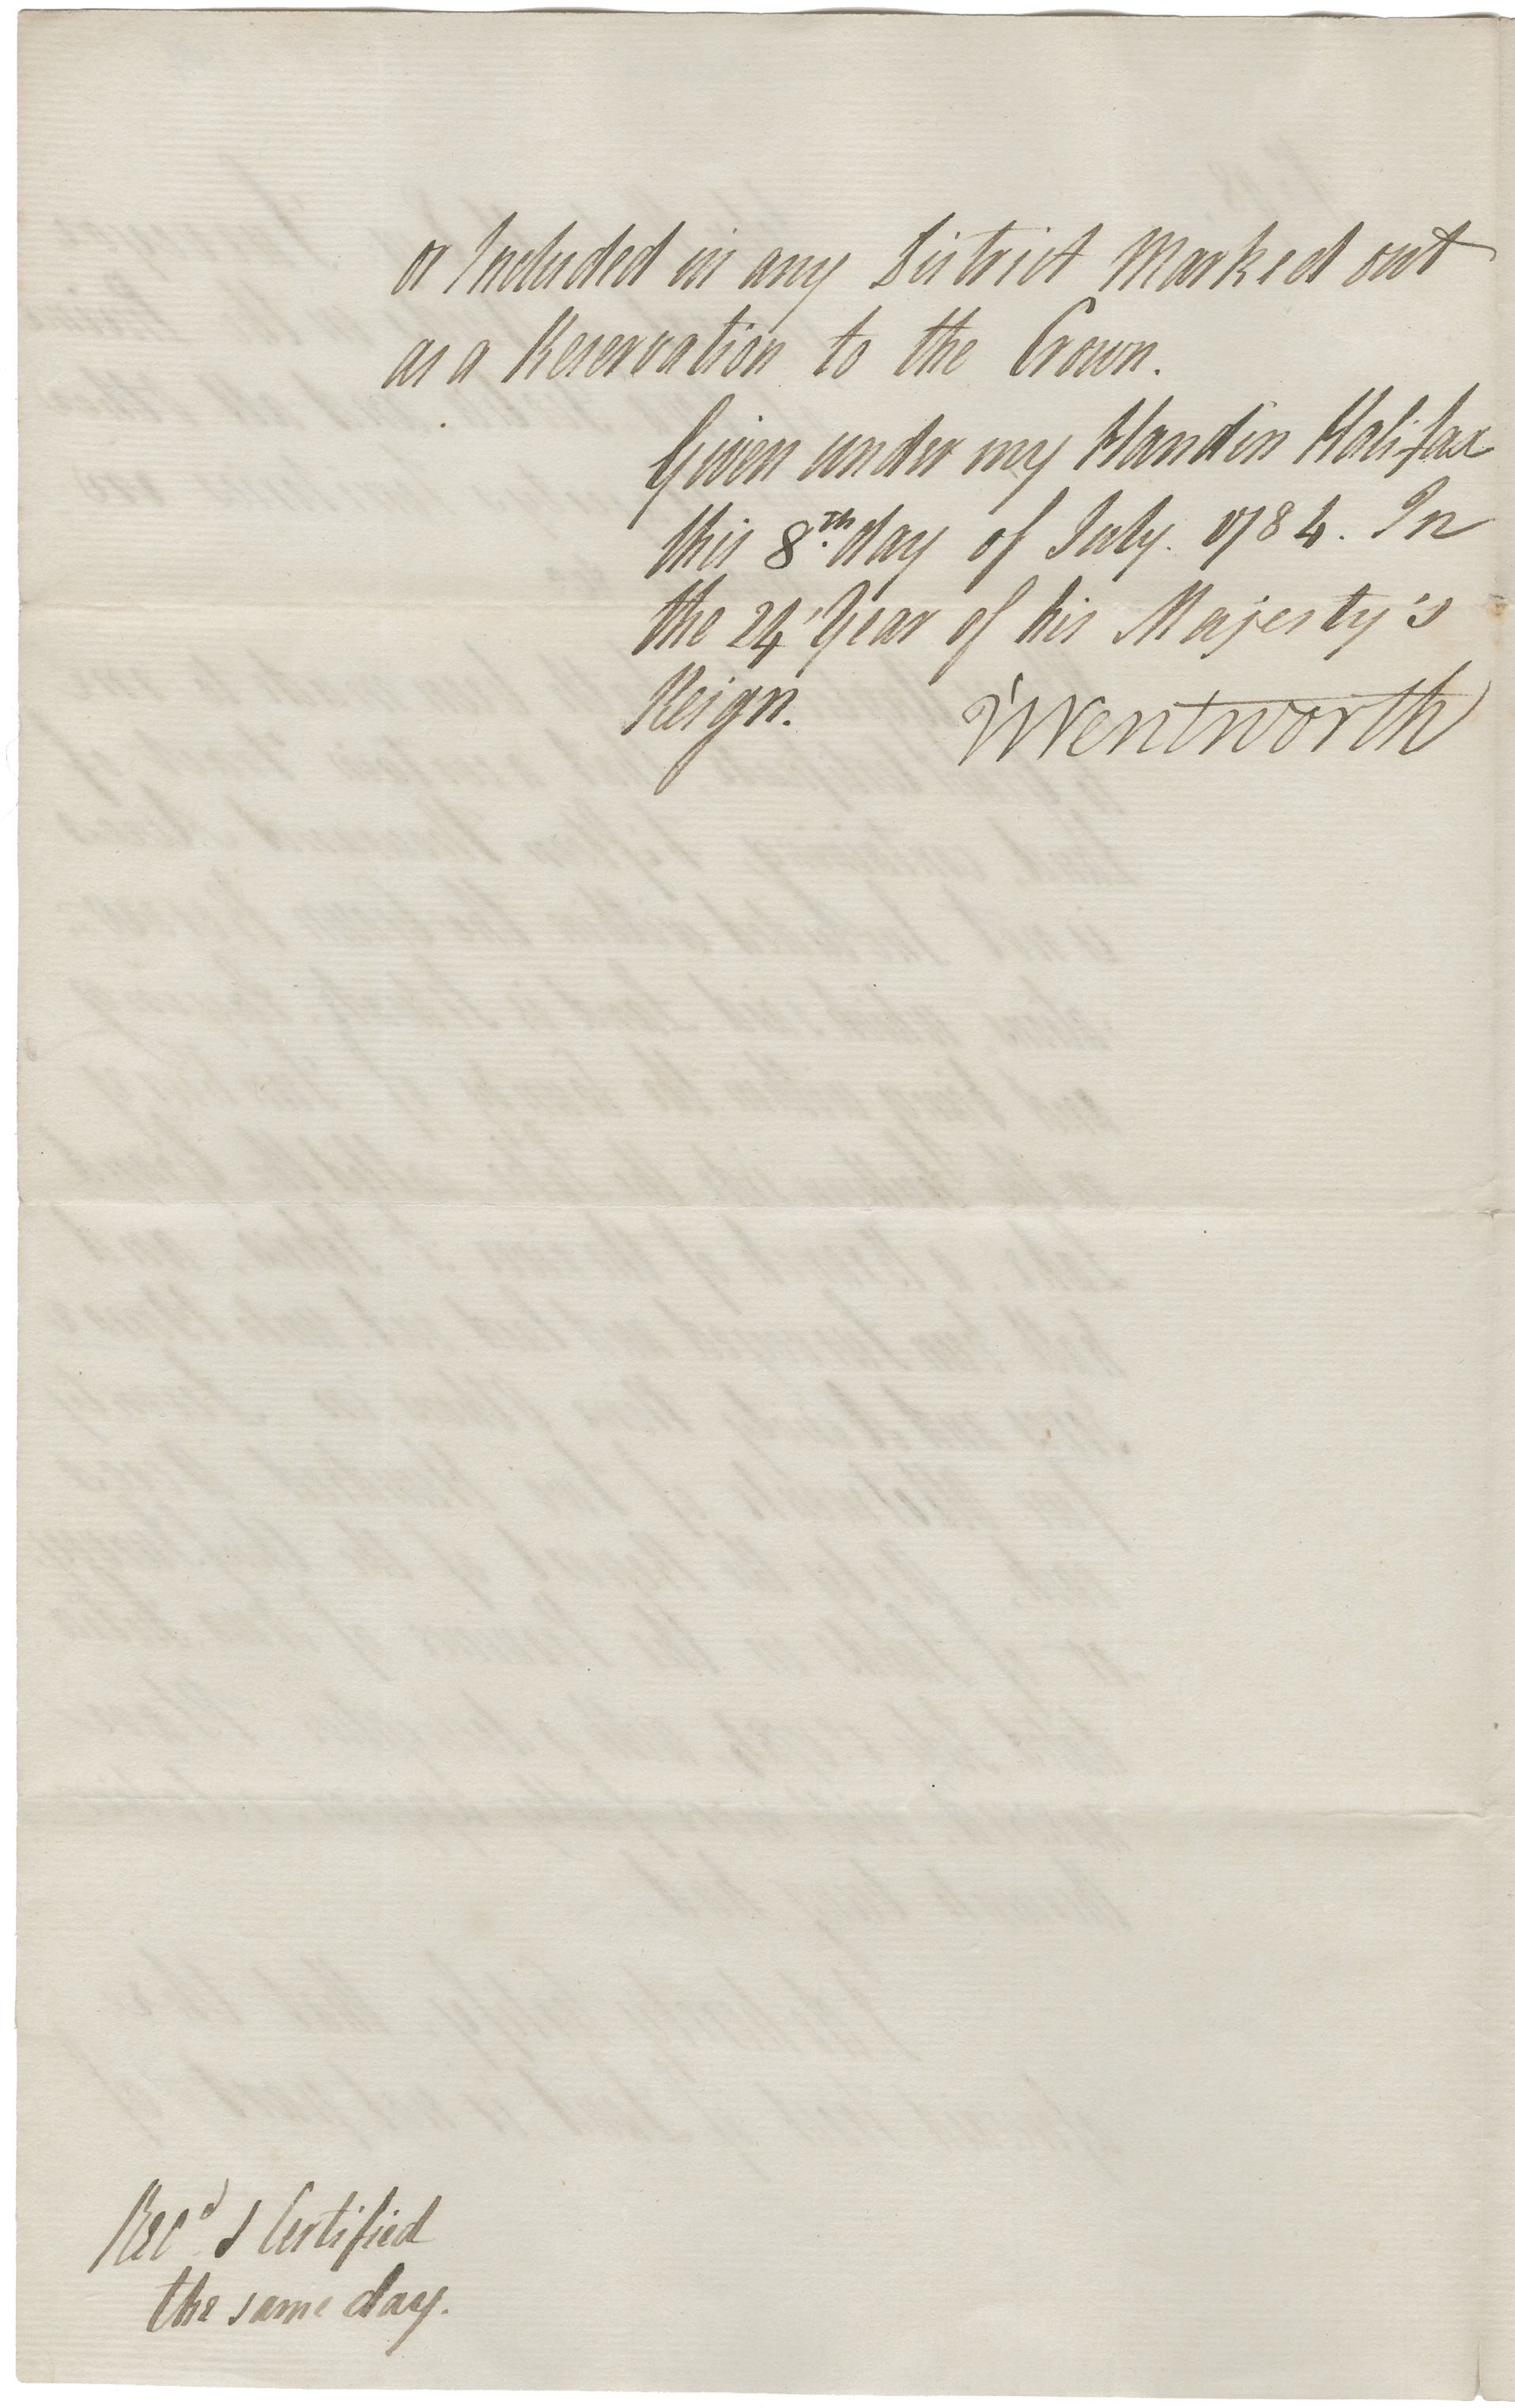 or Included in any District Marked out
as a Reservation to the Crown.
Given under my Hand in Halifax
this 8.th day of July. 1784. In
the 24' Year of his Majesty's
Reign. Wentworth
Rec'd & Certified
the same day.